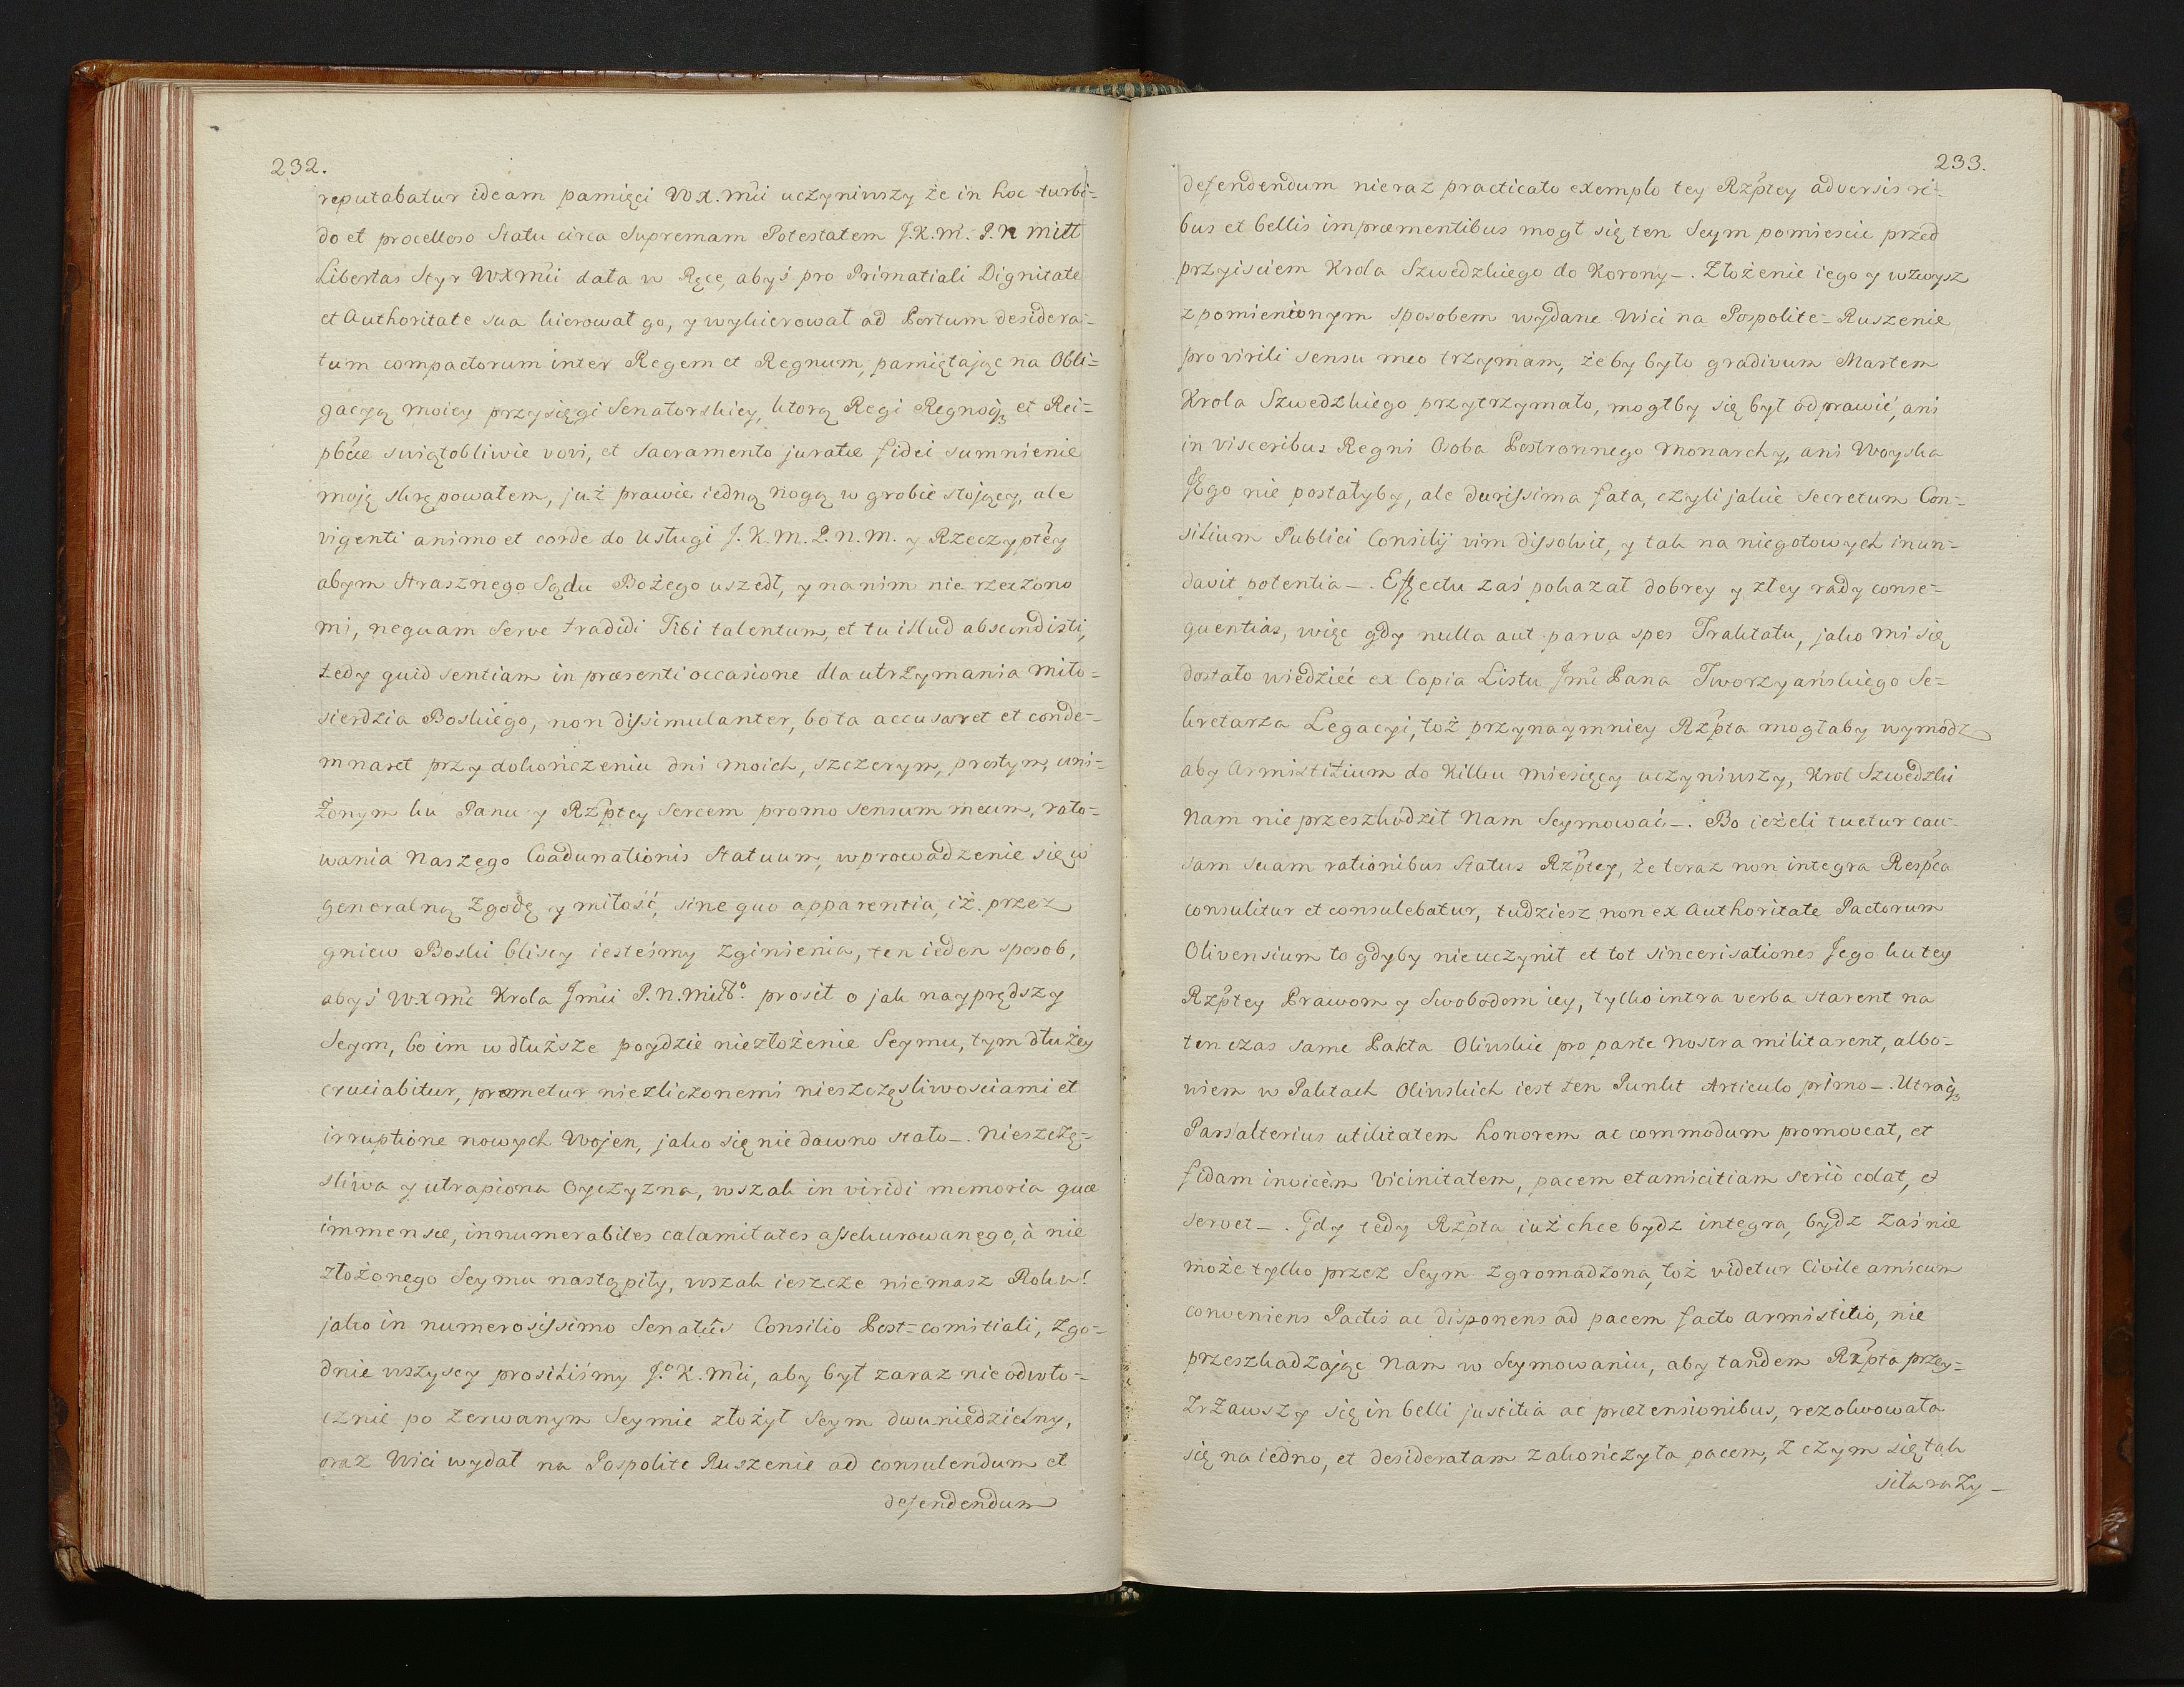 232.
reputabatur ideam pamięci WX.Mći uczyniwszy że in hoc turbi-
do et procelloso Statu circa Supremam Potestatem J.K.M. P.N Miłł
Libertas Styr WXMći dała w Ręce, abyś pro Primatiali Dignitate
et Authoritate sua kierował go, y wykierował ad Portum desidera-
tum compactorum inter Regem et Regnum, pamiętając na Obli-
gacyą moiey przysięgi Senatorskiey, ktorą Regi Regnoq3 et Rei-
pbcæ swiątobliwie vovi, et sacramento juratæ fidei sumnienie
moję skrępowałem, już prawie iedną nogą w grobie stojący, ale
vigenti animo et corde do usługi J.K.M.P.N.M. y Rzeczyptey
abym Strasznego Sądu Bożego uszedł, y na nim nie rzeczono
mi, nequam Serve tradidi Tibi talentum, et tu illud abscondisti,
tedy quid sentiam in præsenti occasione dla utrzymania miło-
sierdzia Boskiego, non dissimulanter, bo ta accusaret et conde-
mnaret przy dokończeniu dni moich, szczerym, prostym, uni-
żonym ku Panu y Rzptey Sercem promo sensum meum, rato-
wania Naszego Coadunationis Statuum, wprowadzenie się w
generalną Zgodę y miłość, sine quo apparentia, iż przez
gniew Boski bliscy iesteśmy Zginienia, ten ieden sposob,
abyś WXMć Krola Jmći P.N.Miłło. prosił o jak nayprędszy
Seym, bo im w dłuższe poydzie niezłożenie Seymu, tym dłużey
cruciabitur, præmetur niezliczonemi nieszczęsliwosciami et
irruptione nowych Wojen, jako się nie dawno stało_. Nieszczę-
sliwa y utrapiona Oyczyzna, wszak in viridi memoria quæ
immensæ, innumerabiles calamitates assekurowanego, à nie
złożonego Seymu nastąpiły, wszak ieszcze niemasz Roku!
jako in numerosissimo Senatûs Consilio Post=comitiali, Zgo-
dnie wszyscy prosiliśmy J.o K.Mći, aby był zaraz nieodwło-
cznie po Zerwanym Seymie złożył Seym dwuniedzielny,
oraz Wici wydał na Pospolite Ruszenie ad consulendum et
defendendum
233.
defendendum nieraz practicato exemplo tey Rzptey adversis ri-
bus et bellis impræmentibus mogł się ten Seym pomiescic przed
przyisciem Krola Szwedzkiego do Korony_. Złożenie iego y wzwysz
zpomienionym sposobem wydane Wici na Pospolite-Ruszenie
pro virili sensu meo trzymam, żeby było gradivum Martem
Krola Szwedzkiego przytrzymało, mogłby się był odprawić, ani
in visceribus Regni Osoba Postronnego Monarchy, ani Woyska
JEgo nie postałyby, ale durissima fata, czyli jakie secretum Con-
silium Publici Consilij vim dissolvit, y tak na niegotowych inun-
davit potentia_. Effectu zaś pokazał dobrey y złey rady conse-
quentias, więc gdy nulla aut parva spes Traktatu, jako mi się
dostało wiedzieć ex Copia Listu Jmć Pana Tworzyańskiego Se-
kretarza Legacyi, toż przynaymniey Rzpta mogłaby wymodz
aby Armistitium do Kilku miesięcy uczyniwszy, Krol Szwedzki
Nam nie przeszkodził Nam Seymować_. Bo ieżeli tuetur cau-
sam suam rationibus Status Rzptey, że teraz non integra Respca
consulitur et consulebatur, tudziesz non ex Authoritate Pactorum
Olivensium to gdyby nie uczynił et tot sincerisationes Jego ku tey
Rzptey Prawom y Swobodom iey, tylko intra verba starent na
ten czas same Pakta Oliwskie pro parte Nostra militarent, albo-
wiem w Paktach Oliwskich iest ten Punkt Articulo primo_. Utraq3
Pars alterius utilitatem honorem ac commodum promoveat, et
fidam invicèm Vicinitatem, pacem et amicitiam seriò colat, et
servet_. Gdy tedy Rzpta iuż chce bydz integra, bydz zaś nie
może tylko przez Seym zgromadzona, toż videtur Civile amicum
conveniens Pactis ac disponens ad pacem facto armistitio, nie
przeszkadzając Nam w Seymowaniu, aby tandem Rzpta przey-
Zrzawszy się in belli justitiâ ac prætensionibus, rezolwowała
się na iedno, et desideratam zakończyła pacem, z czym się tak
siła razy_